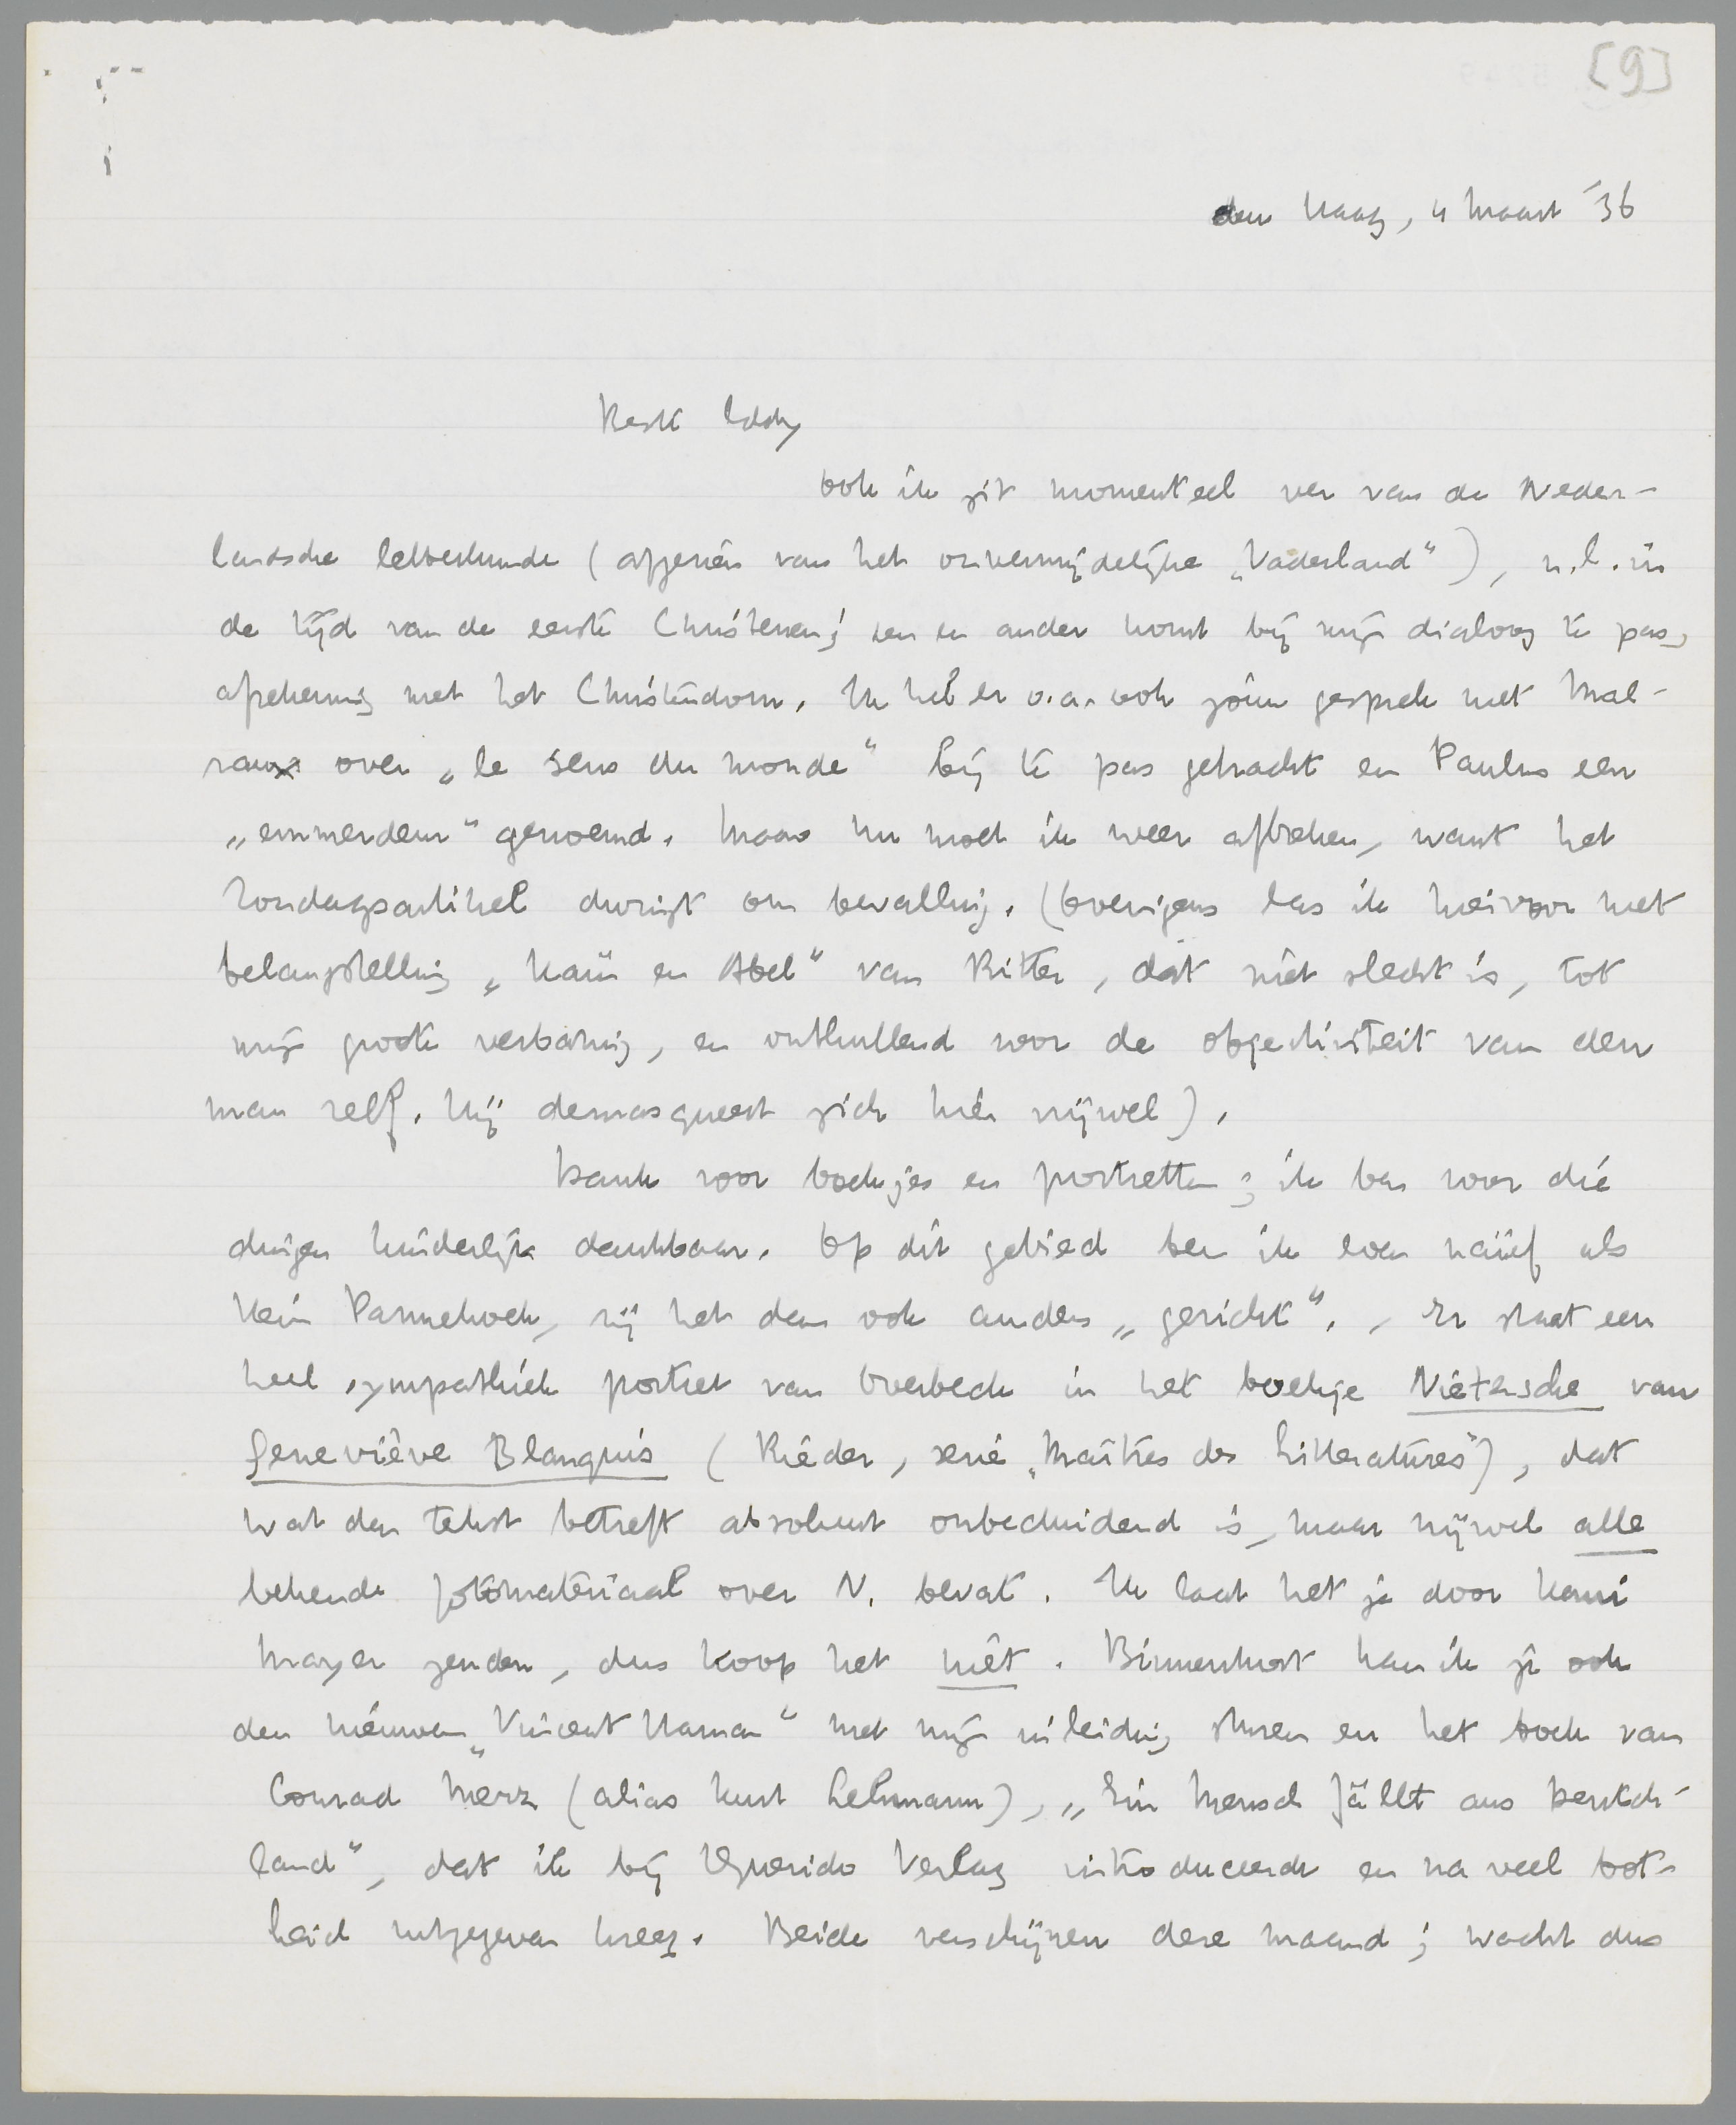 [9]
den Haag, 4 Maart '36
Beste Eddy
Ook ik zit momenteel ver van de Neder-
landsche letterkunde (afgezien van het onvermijdelijke „Vaderland"), n.l. in
de tijd van de eerste Christenen; een en ander komt bij mijn dialoog te pas,
afrekening met het Christendom. Ik heb er o.a. ook jouw gesprek met Mal-
raux over „le sens du monde" bij te pas gebracht en Paulus een
„emmerdeur" genoemd. Maar nu moet ik weer afbreken, want het
Zondagsartikel dwingt om bevalling. (Overigens las ik hiervoor met
belangstelling „Kaïn en Abel" van Ritter, dat niet slecht is, tot
mijn groote verbazing, en onthullend voor de objectiviteit van den
man zelf. Hij demasqueert zich hier vrijwel).
Dank voor boekjes en portretten; ik ben voor die
dingen kinderlijk dankbaar. Op dit gebied ben ik even naïef als
Hein Pannekoek, zij het dan ook anders „gericht". - Er staat een
heel sympathiek portret van Overbeck in het boekje Nietzsche van
Geneviève Blanquis (Rieder, serie „Maîtres des Littératures"), dat
wat den tekst betreft absoluut onbeduidend is, maar vrijwel alle
bekende fotomateriaal over N. bevat. Ik laat het je door Kami
Mayer zenden, dus koop het niet. Binnenkort kan ik je ook
den nieuwen „Vincent Haman" met mijn inleiding sturen en het boek van
Conrad Merz (alias Kurt Lehmann), „Ein Mensch fällt aus Deutsch-
land", dat ik bij Querido Verlag introduceerde en na veel bot-
heid uitgegeven kreeg. Beide verschijnen deze maand; wacht dus